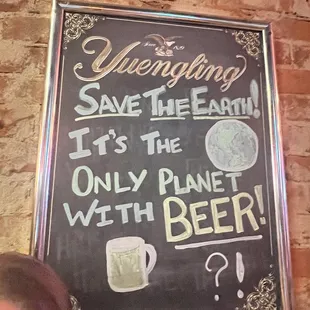 Yuengling
SAVE THE EARTH!
IT'S THE
ONLY PLANET
WITH BEER!
?!